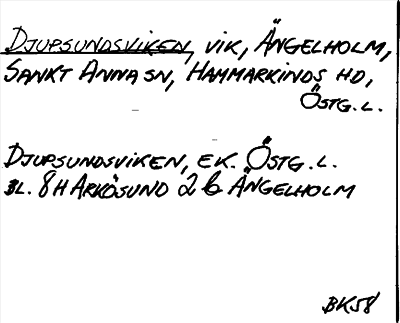 DJUPSUNDSVIKEN, VIK, ÄNGELHOLM,
SANKT ANNA SN, HAMMARKINDS HD,
ÖSTG. L.
DJUPSUNDSVIKEN, EK. ÖSTG. L.
BL. 8H ARKÖSUND 2b ÄNGELHOLM
BK58